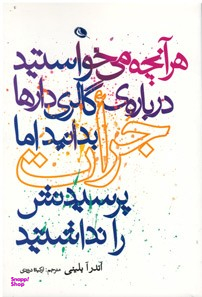 هر آنچه می‌خواستید
درباره‌ی گالری‌دارها
بدانید اما
جرأت
پرسیدنش
را نداشتید
آندرآ بلینی مترجم:
Snapp!
Shop